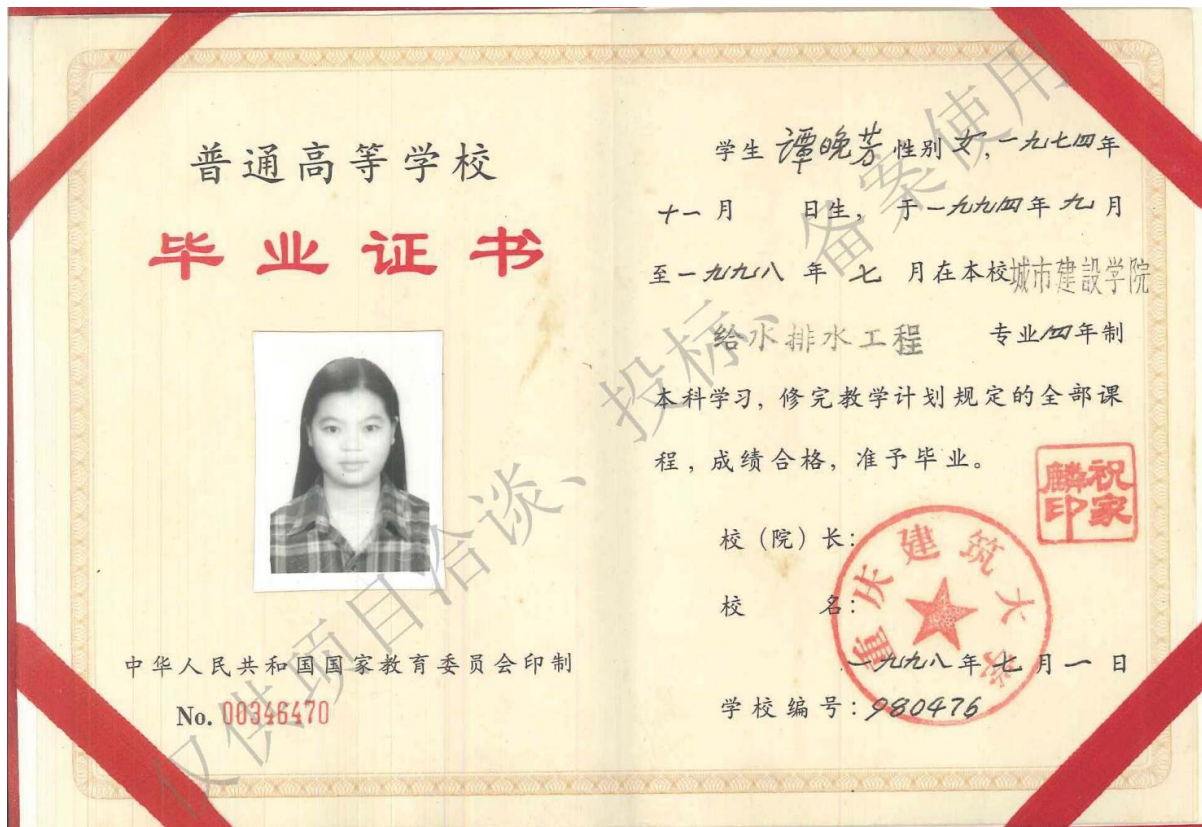 普通高等学校
毕业证书
中华人民共和国国家教育委员会印制
No. 00346470
学生 谭晚芳 性别 女, 一九七四年
十一月 日生, 于一九九四年九月
至一九九八年七月在本校城市建設学院
给水排水工程 专业四年制
本科学习, 修完教学计划规定的全部课
程, 成绩合格, 准予毕业。
校(院)长:
祝家麟印
校 名:
重庆建筑大学
一九九八年七月一日
学校编号: 980476
仅供项目洽谈、投标、备案使用